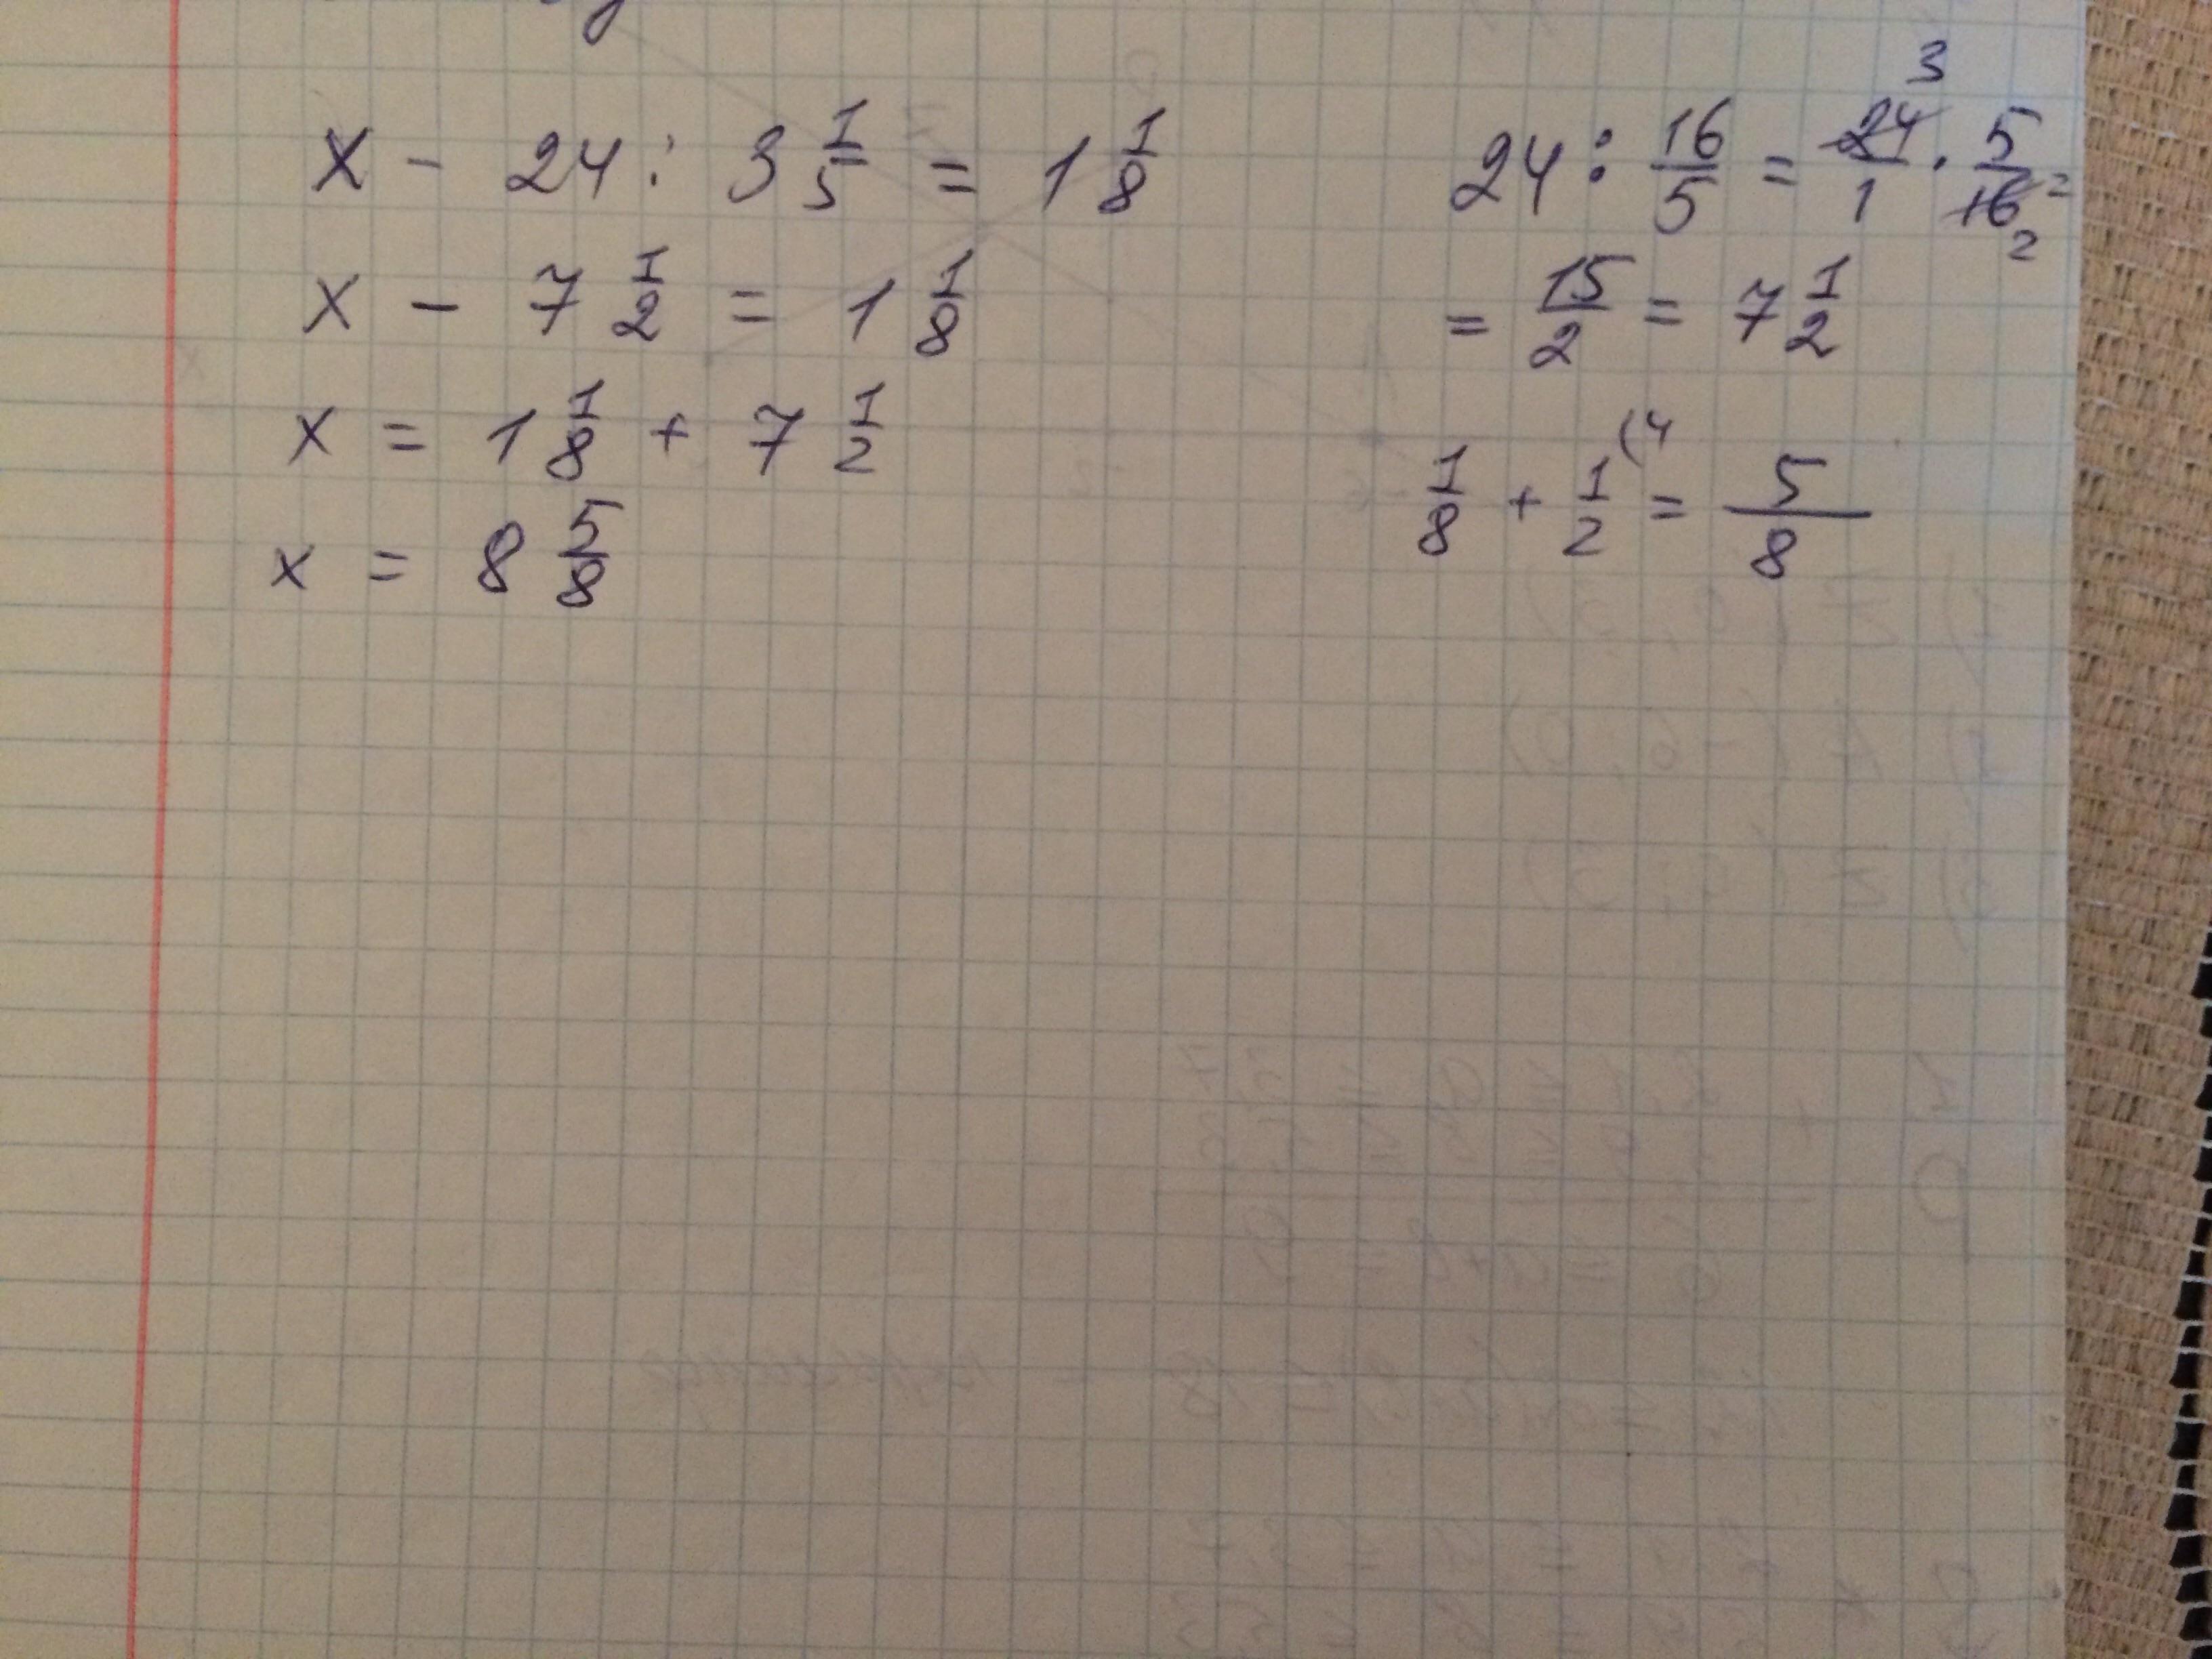 x - 24 : 3 1/5 = 1 1/8
x - 7 1/2 = 1 1/8
x = 1 1/8 + 7 1/2
x = 8 5/8
24 : 16/5 = 24/1 3 · 5/16 2 =
= 15/2 = 7 1/2
1/8 + 1/2 (4 = 5/8